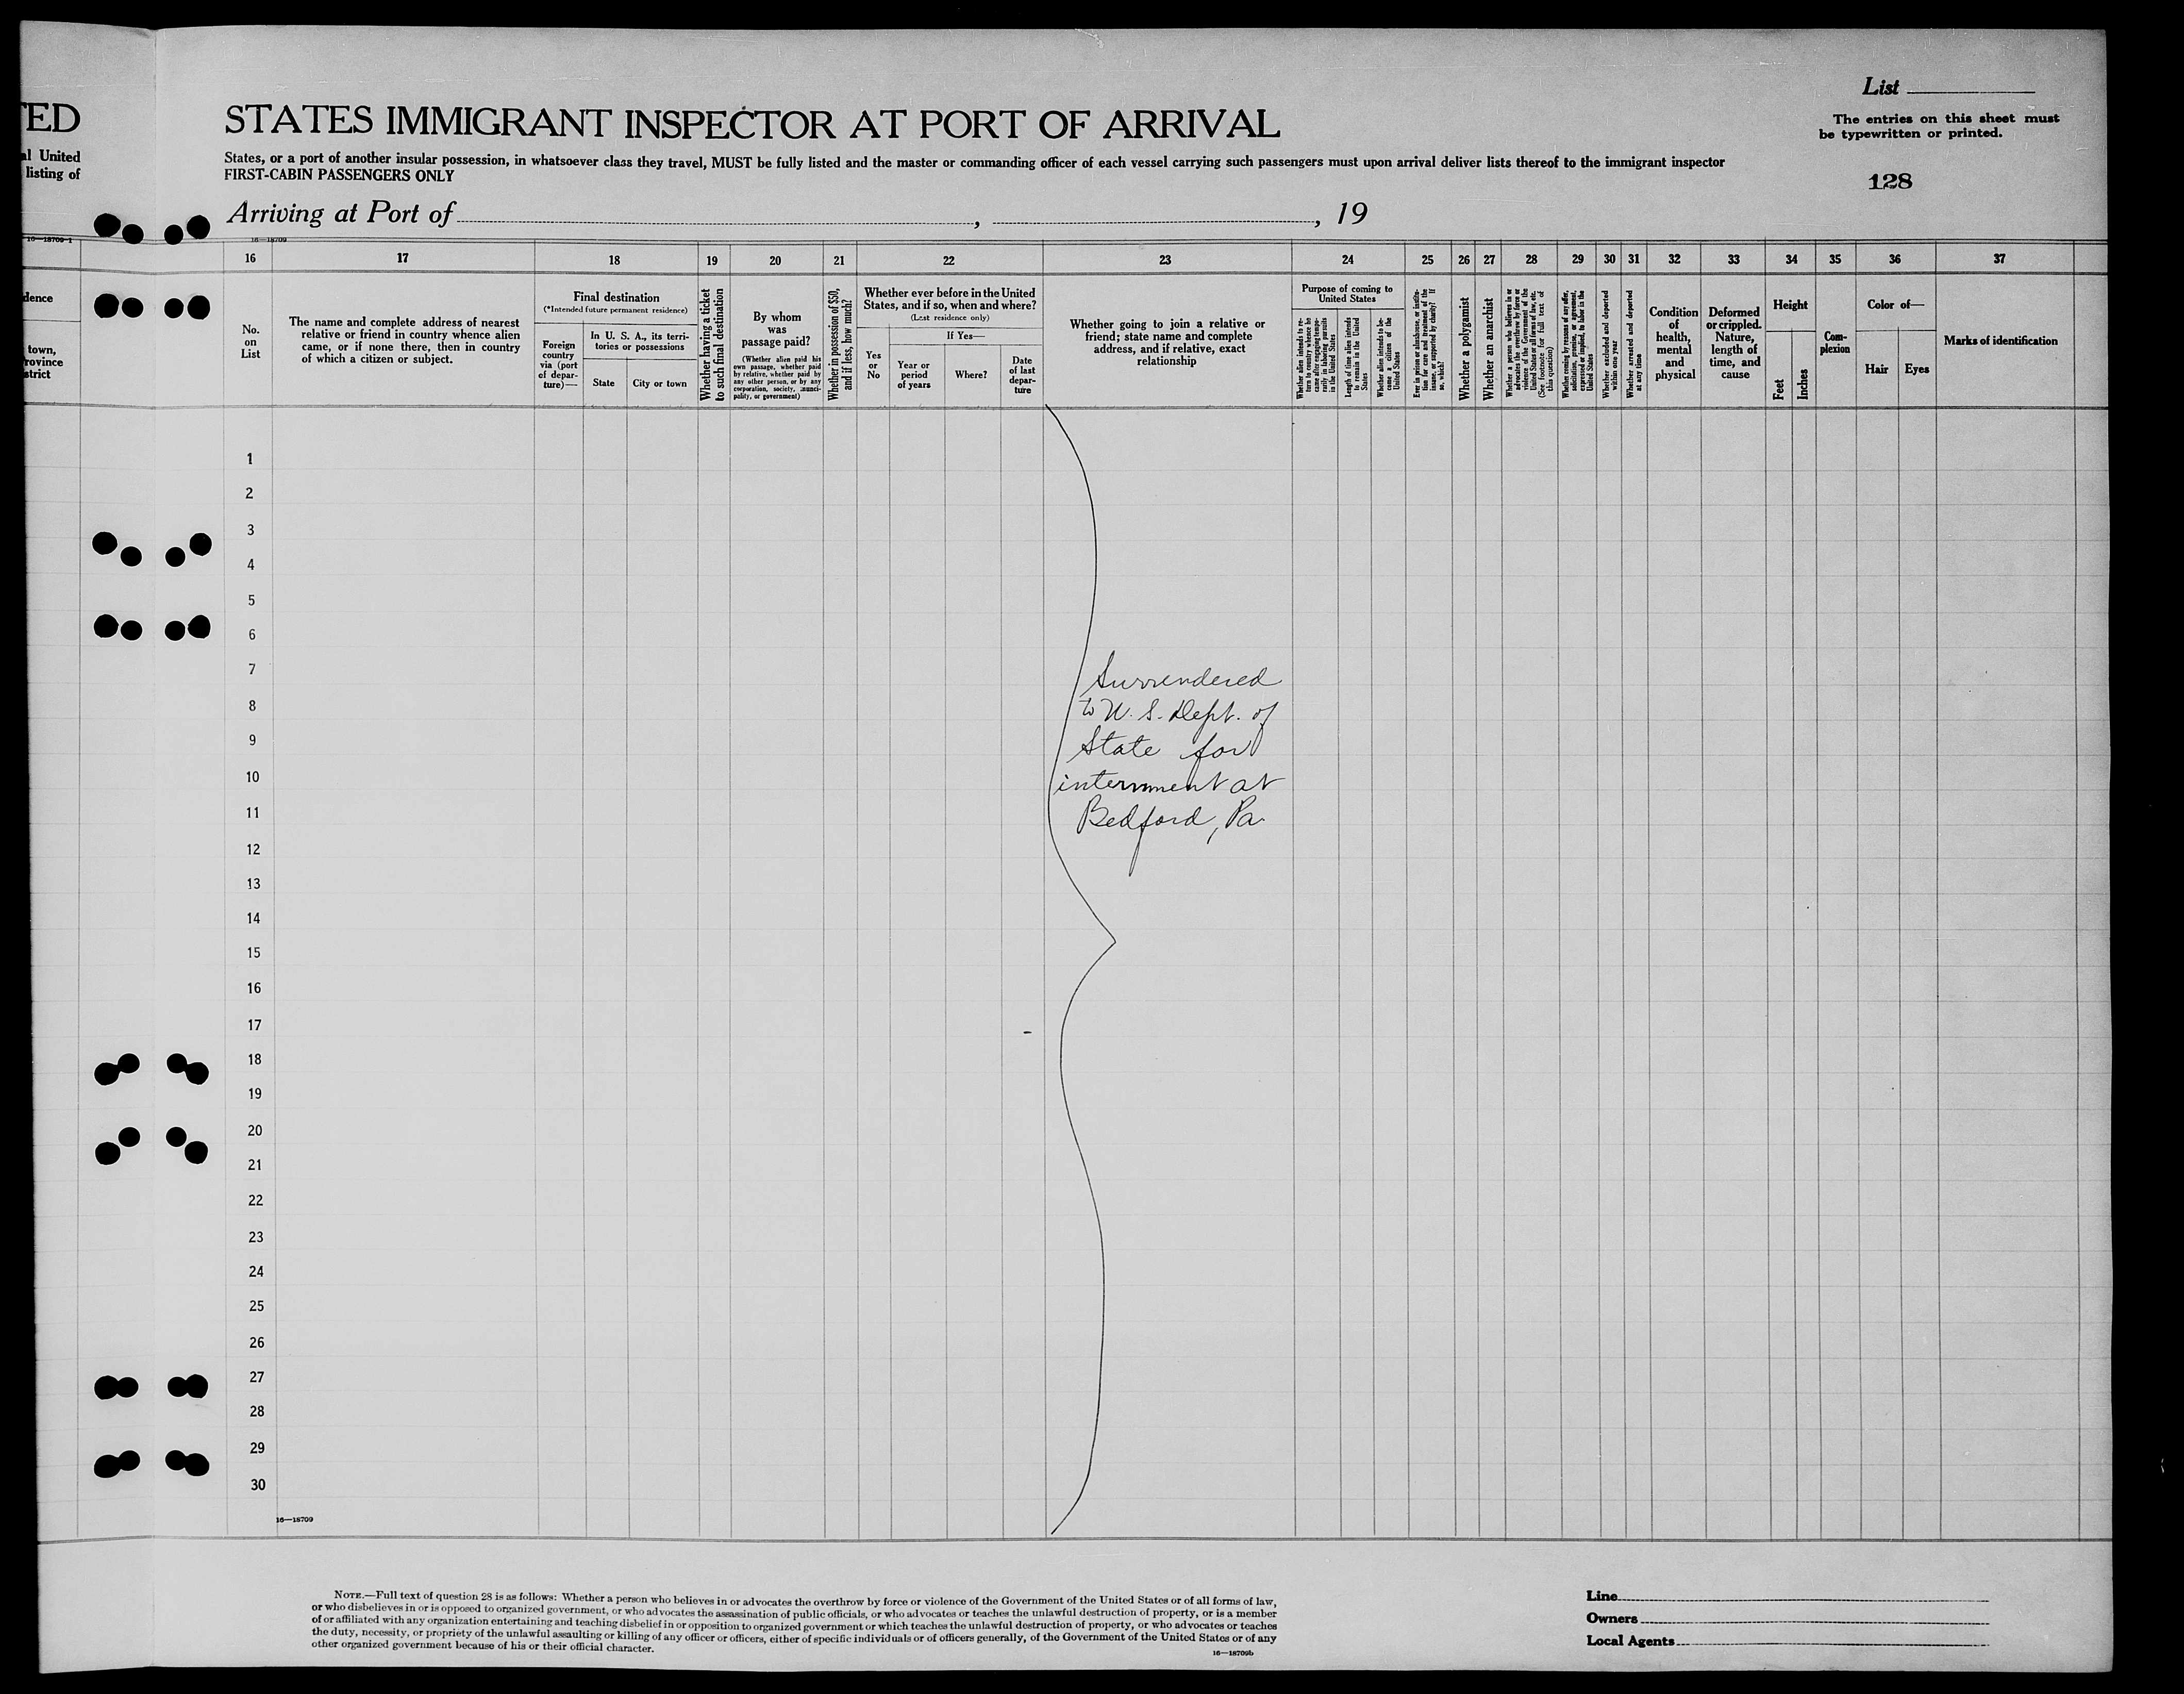 TED
al United
listing of
STATES IMMIGRANT INSPECTOR AT PORT OF ARRIVAL
States, or a port of another insular possession, in whatsoever class they travel, MUST be fully listed and the master or commanding officer of each vessel carrying such passengers must upon arrival deliver lists thereof to the immigrant inspector
FIRST-CABIN PASSENGERS ONLY
List
The entries on this sheet must
be typewritten or printed.
128
Arriving at Port of , , 19
16—18709-1
16—18709
16 17 18 19 20 21 22 23 24 25 26 27 28 29 30 31 32 33 34 35 36 37
dence
town,
rovince
strict
No.
on
List
The name and complete address of nearest
relative or friend in country whence alien
came, or if none there, then in country
of which a citizen or subject.
Final destination
(*Intended future permanent residence)
Foreign
country
via (port
of depar-
ture)—
In U. S. A., its terri-
tories or possessions
State
City or town
Whether having a ticket
to such final destination
By whom
was
passage paid?
(Whether alien paid his
own passage, whether paid
by relative, whether paid by
any other person, or by any
corporation, society, munici-
pality, or government)
Whether in possession of $50,
and if less, how much?
Whether ever before in the United
States, and if so, when and where?
(Last residence only)
Yes
or
No
If Yes—
Year or
period
of years
Where?
Date
of last
depar-
ture
Whether going to join a relative or
friend; state name and complete
address, and if relative, exact
relationship
Purpose of coming to
United States
Whether alien intends to re-
turn to country whence he
came after engaging tempo-
rarily in laboring pursuits
in the United States
Length of time alien intends
to remain in the United
States
Whether alien intends to be-
come a citizen of the
United States
Ever in prison or almshouse, or institu-
tion for care and treatment of the
insane, or supported by charity? If
so, which?
Whether a polygamist
Whether an anarchist
Whether a person who believes in or
advocates the overthrow by force or
violence of the Government of the
United States or all forms of law, etc.
(See footnote for full text of
this question)
Whether coming by reasons of any offer,
solicitation, promise, or agreement,
expressed or implied, to labor in the
United States
Whether excluded and deported
within one year
Whether arrested and deported
at any time
Condition
of
health,
mental
and
physical
Deformed
or crippled.
Nature,
length of
time, and
cause
Height
Feet
Inches
Com-
plexion
Color of—
Hair
Eyes
Marks of identification
1
2
3
4
5
6
7
8
9
10
11
12
13
14
15
16
17
18
19
20
21
22
23
24
25
26
27
28
29
30
Surrendered
to U. S. Dept. of
State for
internment at
Bedford, Pa.
16—18709
NOTE.—Full text of question 28 is as follows: Whether a person who believes in or advocates the overthrow by force or violence of the Government of the United States or of all forms of law,
or who disbelieves in or is opposed to organized government, or who advocates the assassination of public officials, or who advocates or teaches the unlawful destruction of property, or is a member
of or affiliated with any organization entertaining and teaching disbelief in or opposition to organized government or which teaches the unlawful destruction of property, or who advocates or teaches
the duty, necessity, or propriety of the unlawful assaulting or killing of any officer or officers, either of specific individuals or of officers generally, of the Government of the United States or of any
other organized government because of his or their official character.
16—18709b
Line
Owners
Local Agents